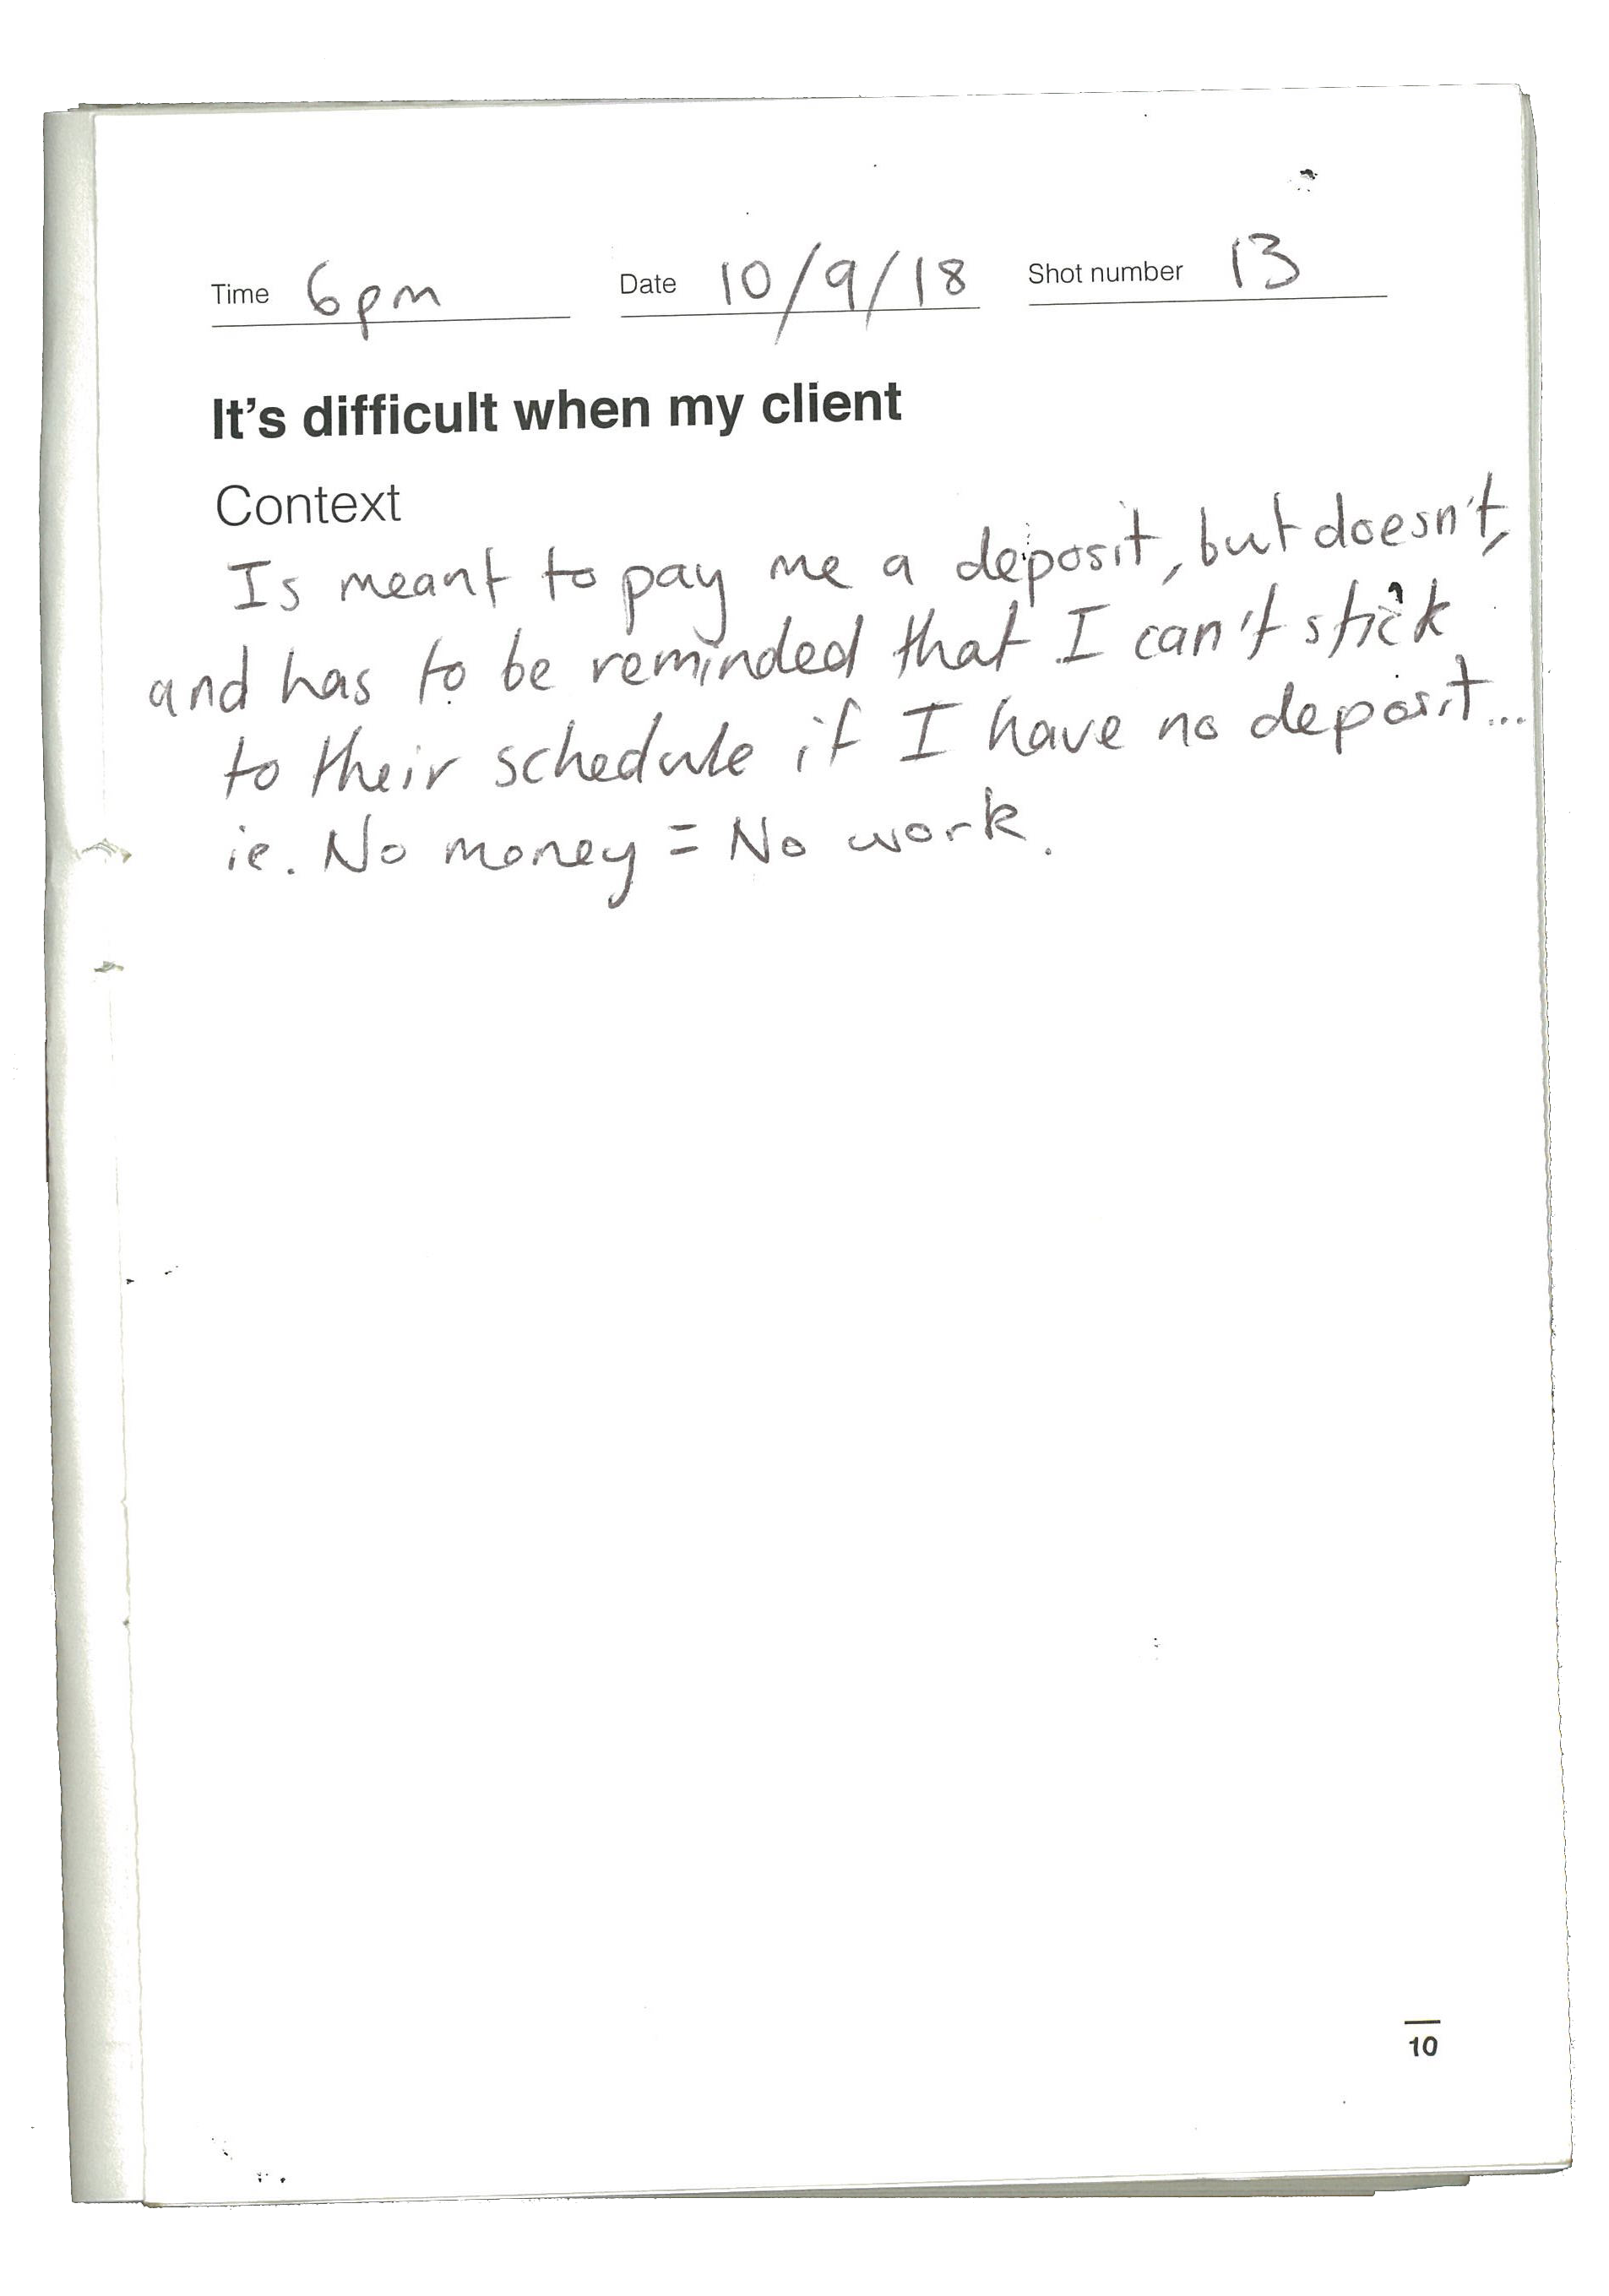 Time 6pm Date 10/9/18 Shot number 13
It's difficult when my client
Context
Is meant to pay me a deposit, but doesn't,
and has to be reminded that I can't stick
to their schedule if I have no deposit...
ie. No money = No work.
10